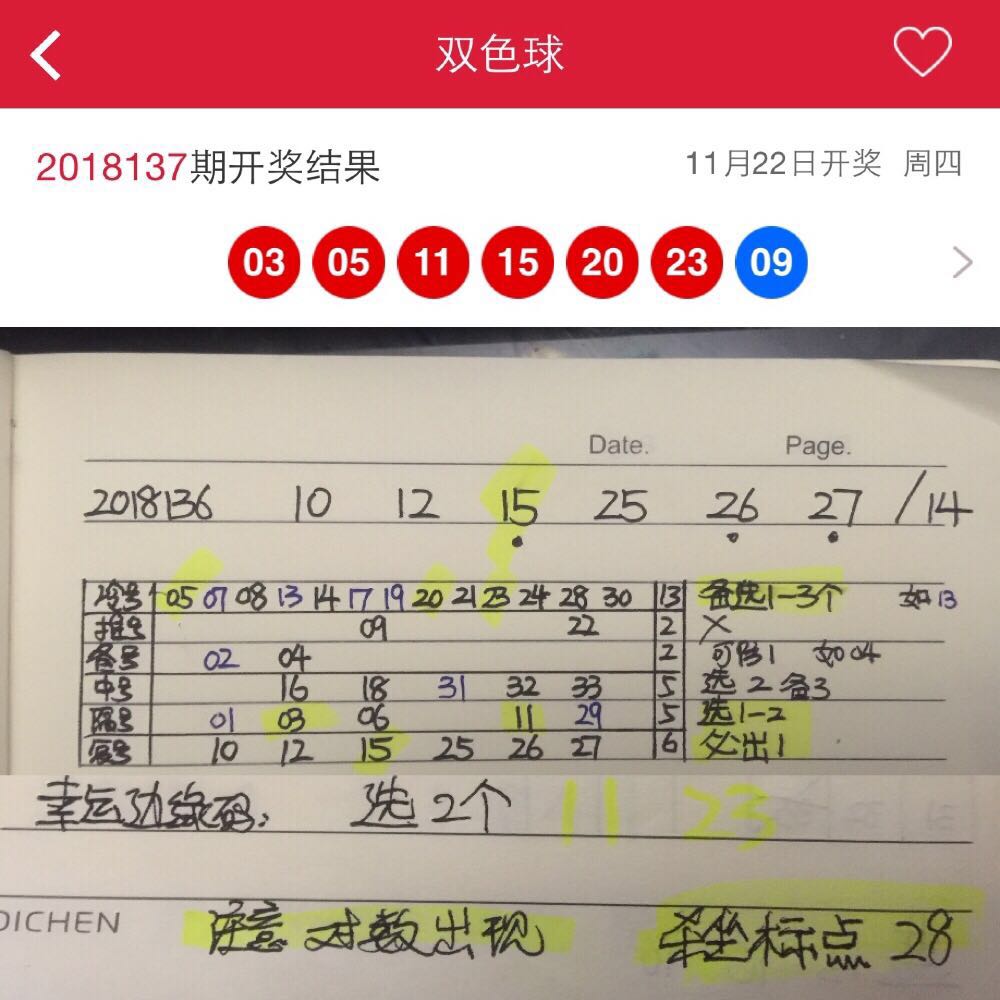 双色球
2018137期开奖结果 11月22日开奖 周四
03 05 11 15 20 23 09
Date. Page.
2018136 10 12 15 25 26 27 /14
冷号 05 07 08 13 14 17 19 20 21 23 24 28 30 13 备选1-3个 如13
09 22 2 X
02 04 2 1 如04
中号 16 18 31 32 33 5 选2备3
隔号 01 03 06 11 29 5 选1-2
10 12 15 25 26 27 6 必出1
幸运边缘码: 选2个 11 23
DICHEN 注意 对数出现 杀坐标点 28